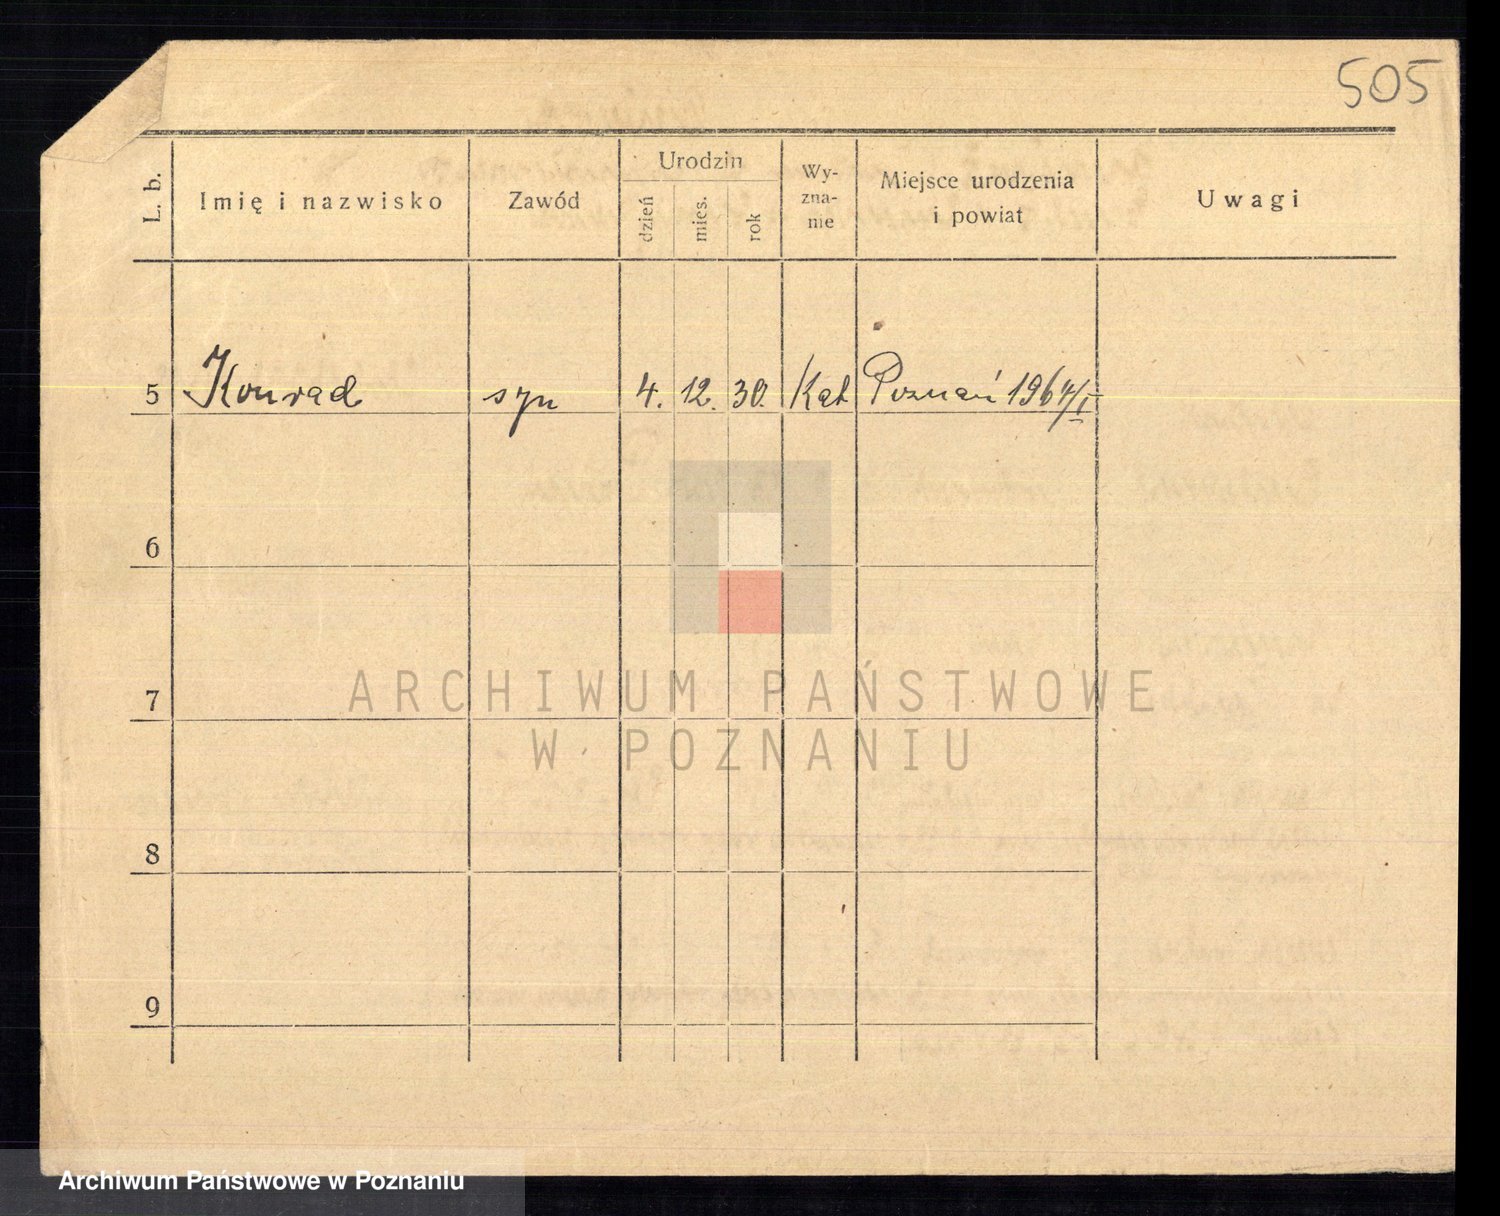 505
L. b.
Imię i nazwisko
Zawód
Urodzin
dzień
mies.
rok
Wy-
zna-
nie
Miejsce urodzenia
i powiat
Uwagi
5 Konrad syn 4. 12. 30. Kat Poznań 1964/I
6
7
8
9
ARCHIWUM PAŃSTWOWE
W POZNANIU
Archiwum Państwowe w Poznaniu